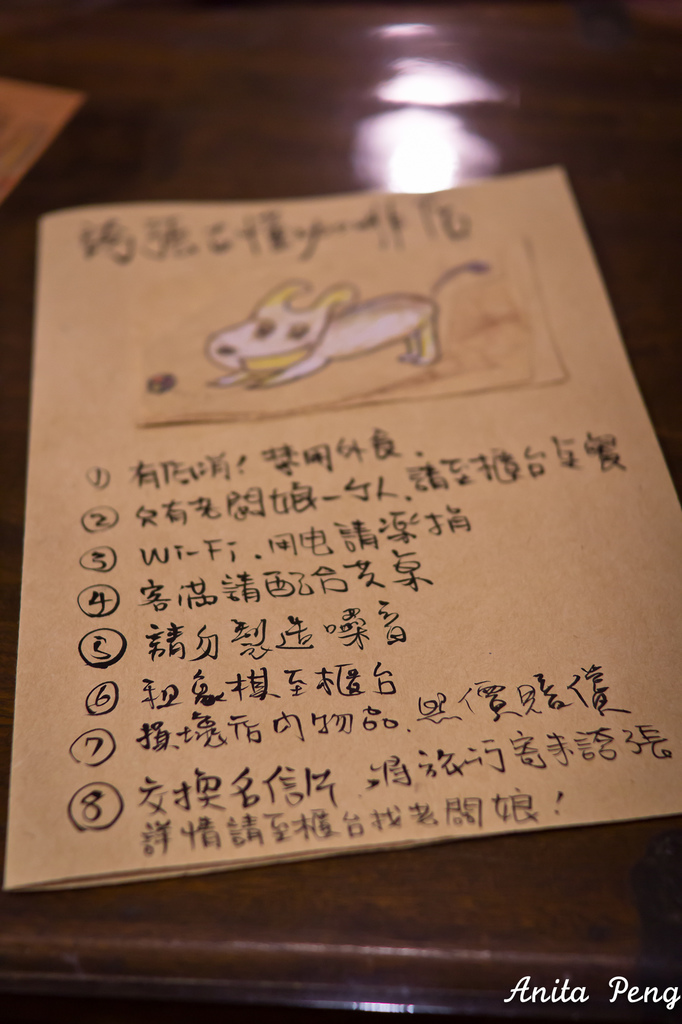 誇張古懂
① 有低消！禁用外食.
② 只有老闆娘一個人.請至櫃台點餐
③ Wi-Fi.用电請樂捐
④ 客滿請配合共桌
⑤ 請勿製造噪音
⑥ 租象棋至櫃台
⑦ 損壞店內物品.照價賠償
⑧ 交換名信片.將旅行寄來誇張
詳情請至櫃台找老闆娘！
Anita Peng